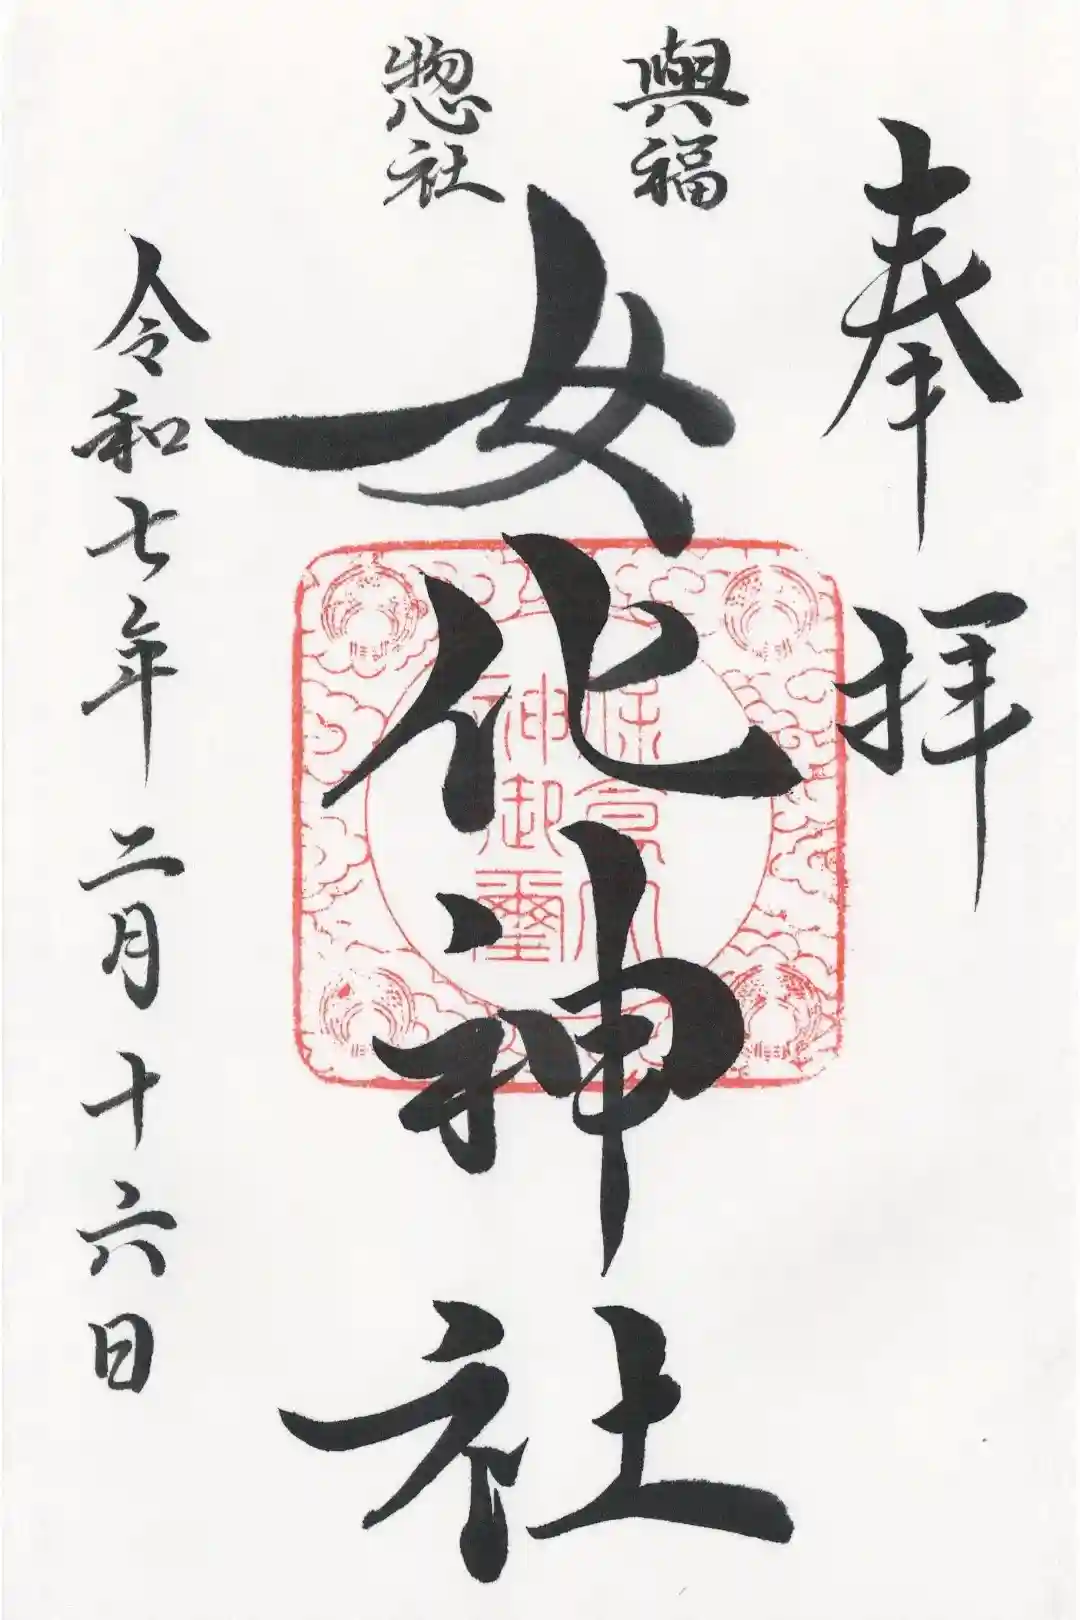 奉拝
與福
惣社
女化神社
保食大
神御璽
令和七年二月十六日